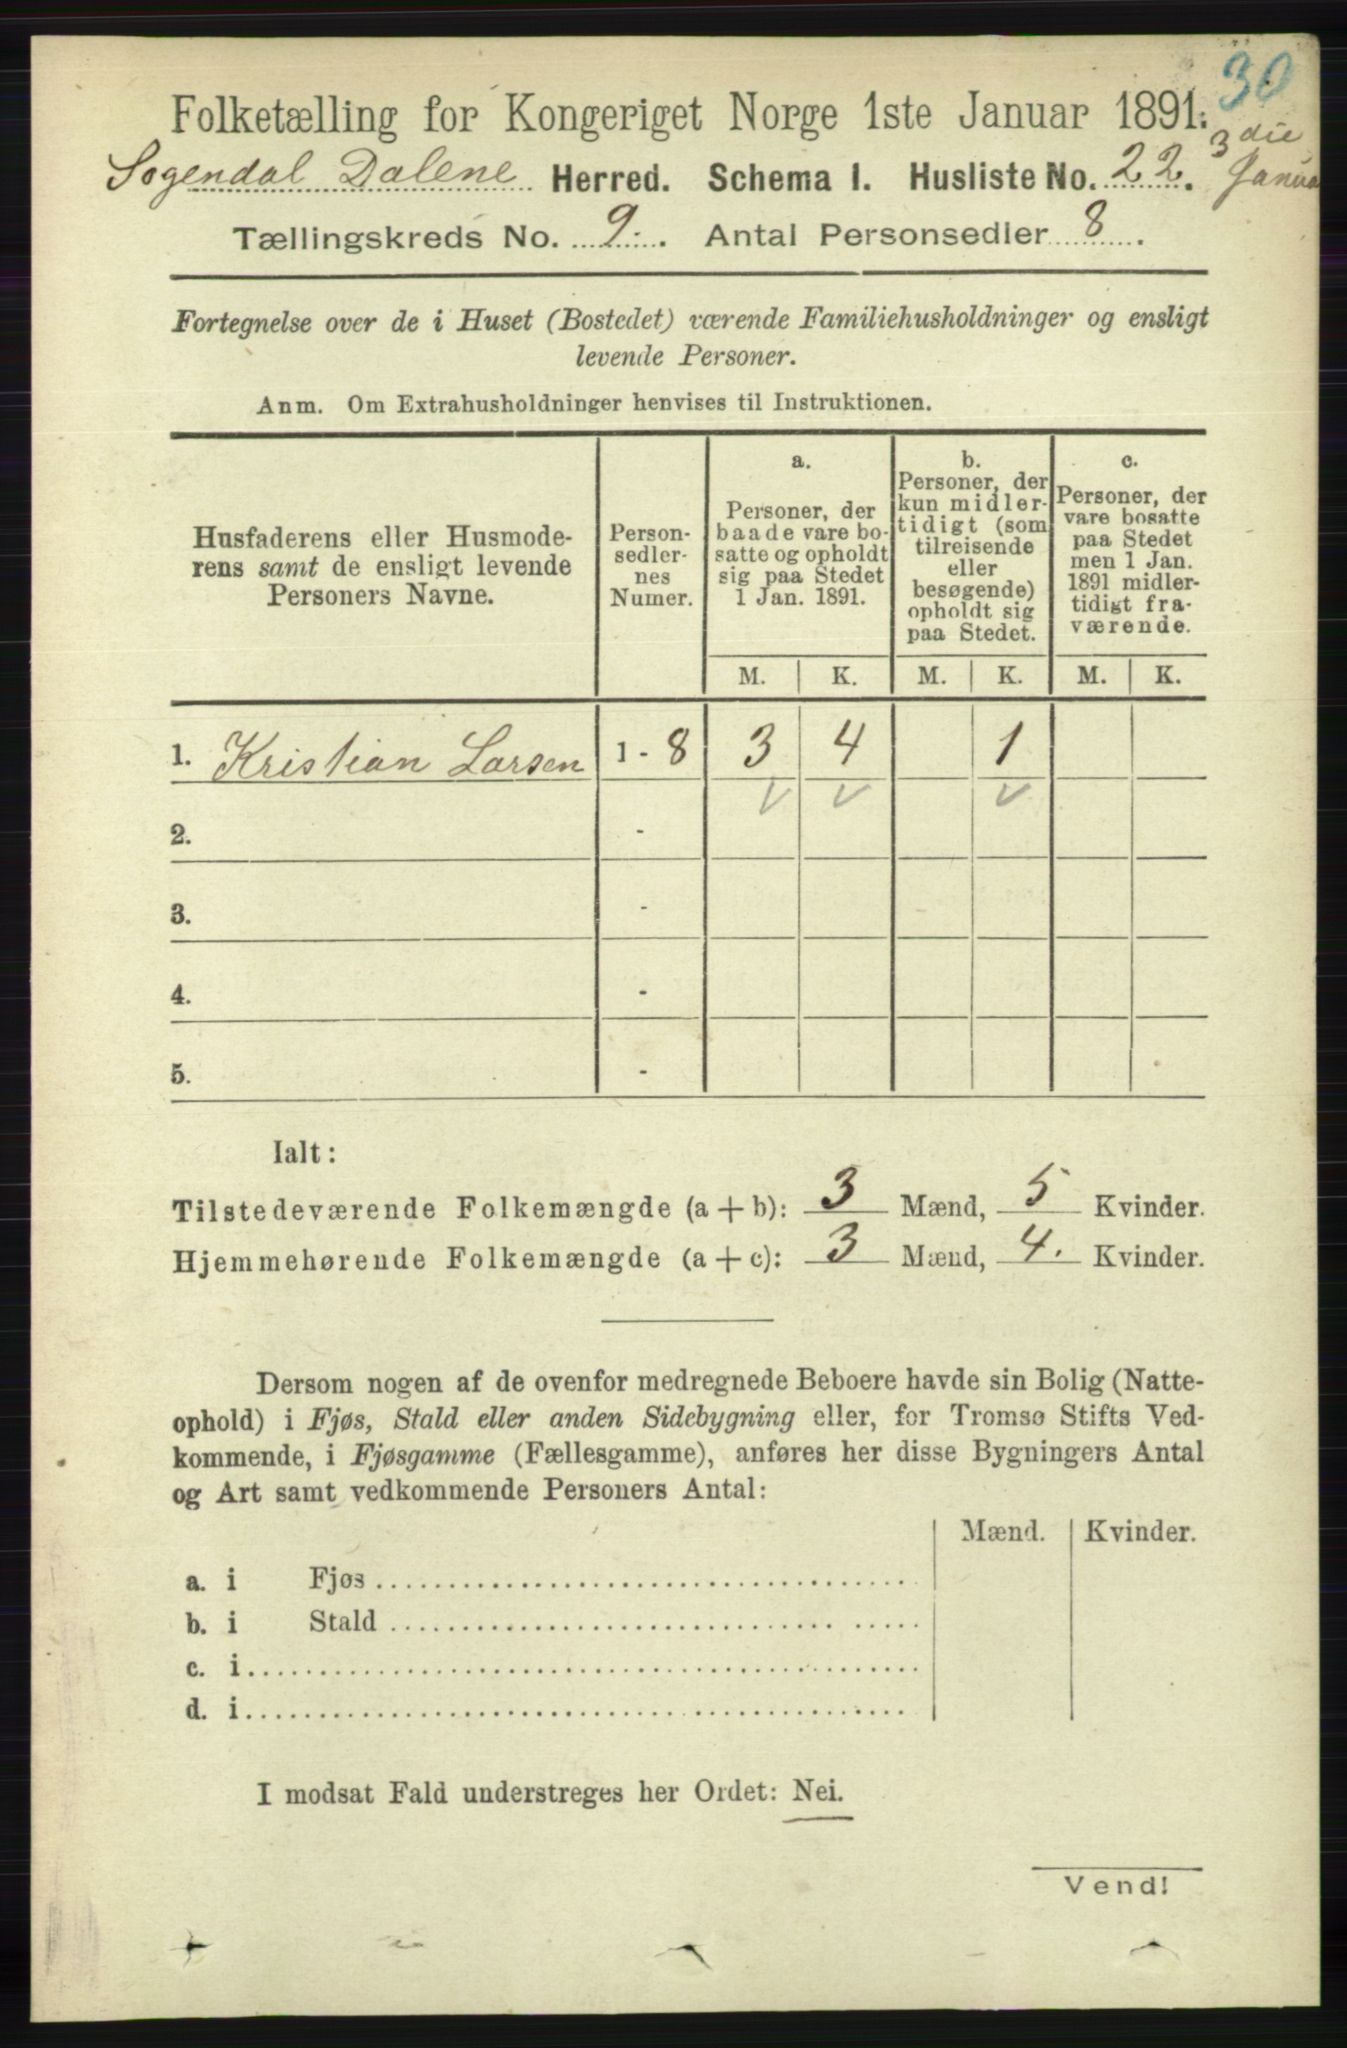 30
Folketælling for Kongeriget Norge 1ste Januar 1891.
3 die
Januar
Sogendal Dalene Herred. Schema 1. Husliste No. 22.
Tællingskreds No. 9. Antal Personsedler 8.
Fortegnelse over de i Huset (Bostedet) værende Familiehusholdninger og ensligt
levende Personer.
Anm. Om Extrahusholdninger henvises til Instruktionen.
Husfaderens eller Husmode-
rens samt de ensligt levende
Personers Navne.
Person-
sedler-
nes
Numer.
a.
Personer, der
baade vare bo-
satte og opholdt
sig paa Stedet
1 Jan. 1891.
b.
Personer, der
kun midler-
tidigt (som
tilreisende
eller
besøgende)
opholdt sig
paa Stedet.
c.
Personer, der
vare bosatte
paa Stedet
men 1 Jan.
1891 midler-
tidigt fra-
værende.
M. K. M. K. M. K.
1. Kristian Larsen 1 - 8 3 4 1
2. -
3. -
4. -
5. -
Ialt:
Tilstedeværende Folkemængde (a + b): 3 Mænd, 5 Kvinder.
Hjemmehørende Folkemængde (a + c): 3 Mænd, 4. Kvinder.
Dersom nogen af de ovenfor medregnede Beboere havde sin Bolig (Natte-
ophold) i Fjøs, Stald eller anden Sidebygning eller, for Tromsø Stifts Ved-
kommende, i Fjøsgamme (Fællesgamme), anføres her disse Bygningers Antal
og Art samt vedkommende Personers Antal:
Mænd. Kvinder.
a. i Fjøs
b. i Stald
c. i
d. i
I modsat Fald understreges her Ordet: Nei.
Vend!